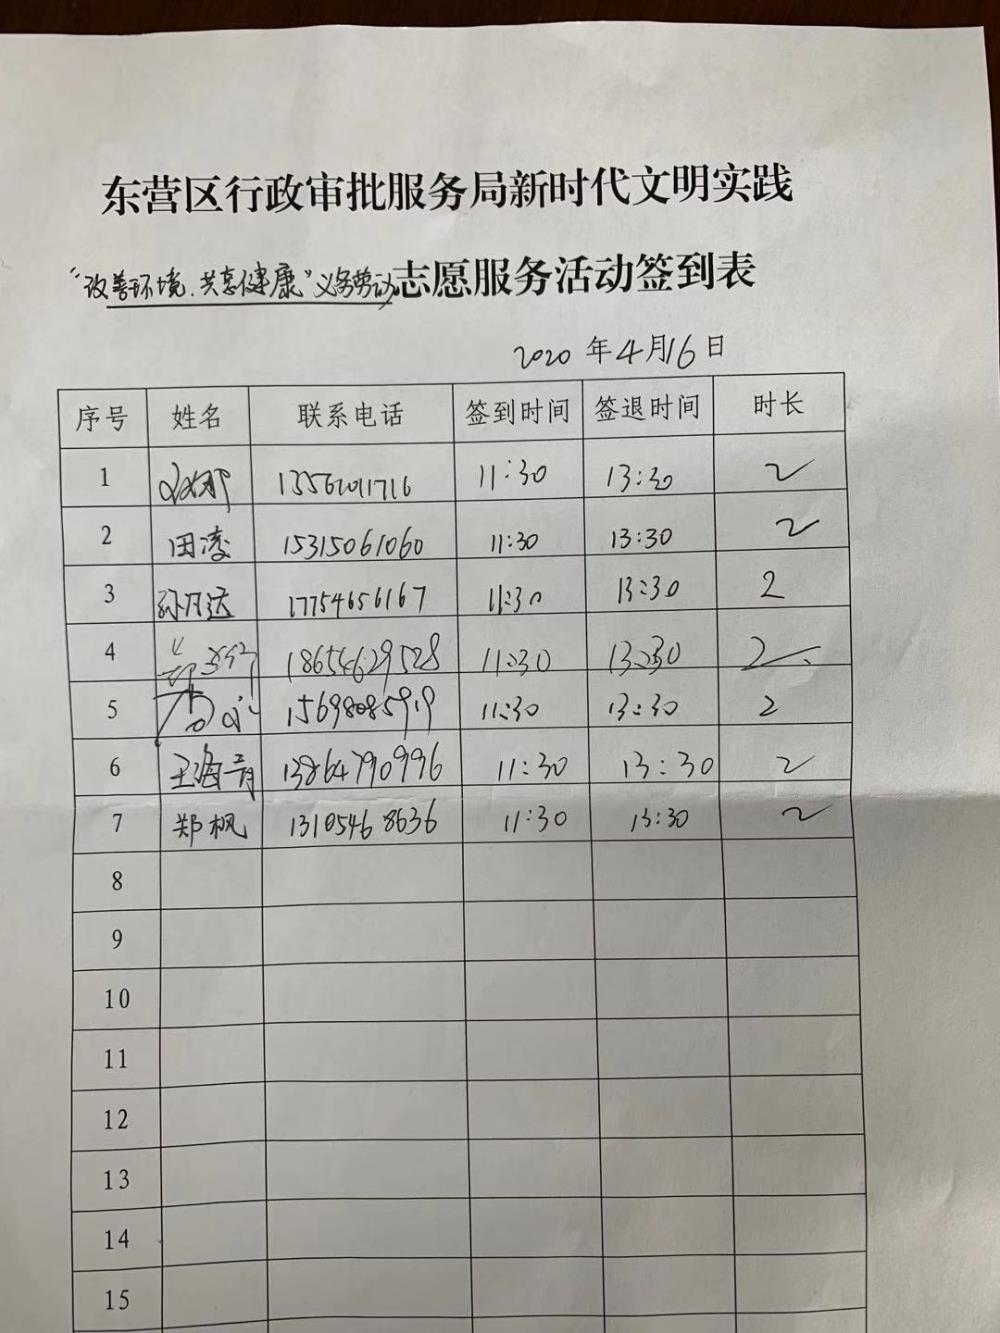 东营区行政审批服务局新时代文明实践
“改善环境、共享健康”义务劳动志愿服务活动签到表
2020 年 4 月 16 日
序号 姓名 联系电话 签到时间 签退时间 时长
1 11:30 13:30 2
2 田凌 15315061060 11:30 13:30 2
3 17754656167 11:30 13:30 2
4 18654629528 11:30 13:30 2
5 11:30 13:30 2
6 王海青 13864790996 11:30 13:30 2
7 郑枫 13105468636 11:30 13:30 2
8
9
10
11
12
13
14
15